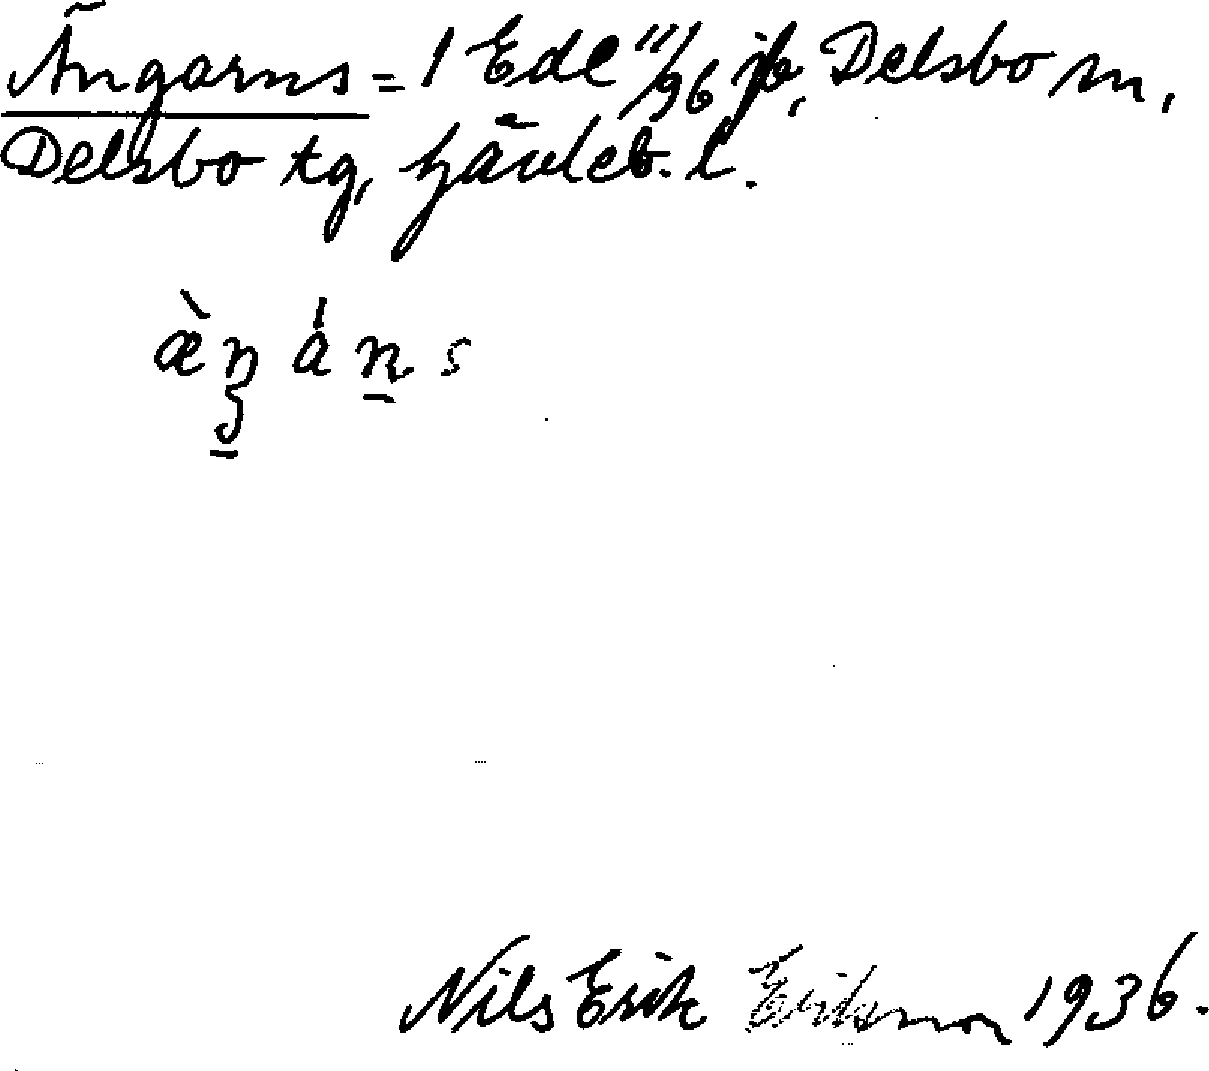 Ängarns = 1 Ede 11/96 jb, Delsbo sn,
Delsbo tg, Gävleb. l.
Nils Erik Eriksson 1936.